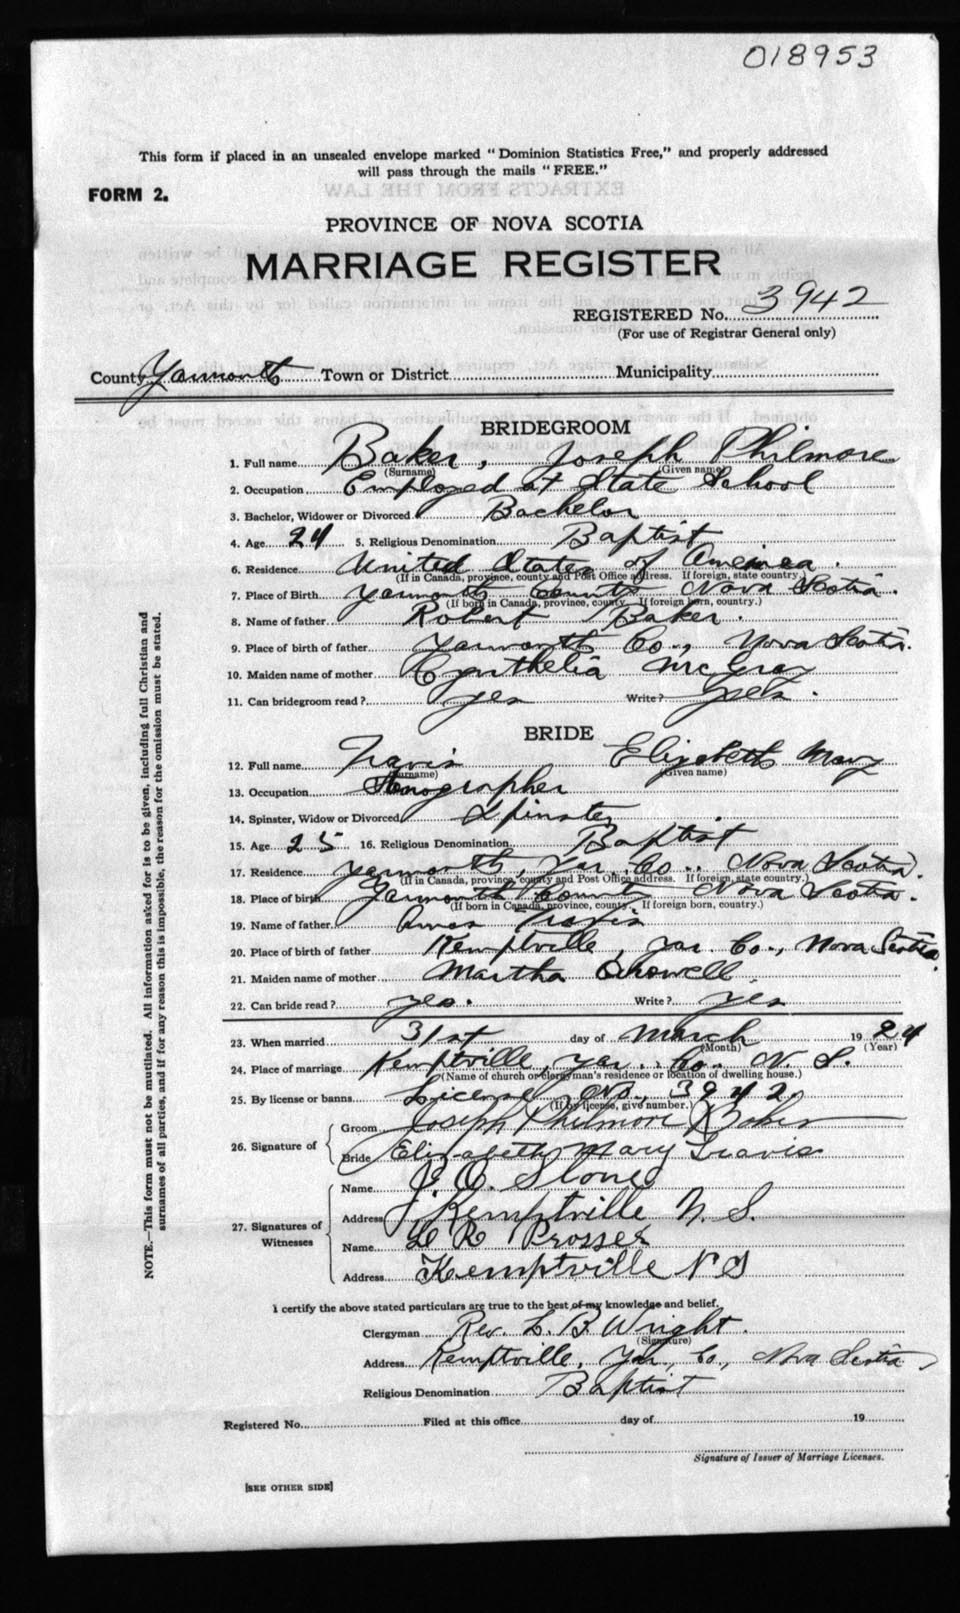 018953
This form if placed in an unsealed envelope marked "Dominion Statistics Free," and properly addressed
will pass through the mails "FREE."
FORM 2.
PROVINCE OF NOVA SCOTIA
MARRIAGE REGISTER
REGISTERED No. 3942
(For use of Registrar General only)
County Yarmouth Town or District Municipality
BRIDEGROOM
1. Full name Baker, Joseph Philmore
(Surname) (Given name)
2. Occupation Employed at State School
3. Bachelor, Widower or Divorced Bachelor
4. Age 24 5. Religious Denomination Baptist
6. Residence United States of America.
(If in Canada, province, county and Post Office address. If foreign, state country.)
7. Place of Birth Yarmouth County Nova Scotia.
(If born in Canada, province, county. If foreign born, country.)
8. Name of father Robert Baker.
9. Place of birth of father Yarmouth Co., Nova Scotia.
10. Maiden name of mother Cynthelia McGray
11. Can bridegroom read? yes Write? yes.
BRIDE
12. Full name Travis Elizabeth Mary
(Surname) (Given name)
13. Occupation Stenographer
14. Spinster, Widow or Divorced Spinster
15. Age 25 16. Religious Denomination Baptist
17. Residence Yarmouth, Yar. Co., Nova Scotia.
(If in Canada, province, county and Post Office address. If foreign, state country.)
18. Place of birth Yarmouth County Nova Scotia.
(If born in Canada, province, county. If foreign born, country.)
19. Name of father Amos Travis
20. Place of birth of father Kemptville, Yar. Co., Nova Scotia.
21. Maiden name of mother Martha Crowell
22. Can bride read? yes. Write? yes
23. When married 31st day of March 1924
(Month) (Year)
24. Place of marriage Kemptville, Yar. Co. N. S.
(Name of church or clergyman's residence or location of dwelling house.)
25. By license or banns License No. 3942.
(If by license, give number.)
26. Signature of Groom Joseph Philmore Baker
Bride Elizabeth Mary Travis
27. Signatures of Witnesses
Name J. O. Stone
Address Kemptville N. S.
Name L R Prosser
Address Kemptville N S
I certify the above stated particulars are true to the best of my knowledge and belief.
Clergyman Rev. L. B. Wright.
(Signature)
Address Kemptville, Yar., Co., Nova Scotia
Religious Denomination Baptist
Registered No. Filed at this office day of 19
Signature of Issuer of Marriage Licenses.
[SEE OTHER SIDE]
NOTE.—This form must not be mutilated. All information asked for is to be given, including full Christian and
surnames of all parties, and if for any reason this is impossible, the reason for the omission must be stated.